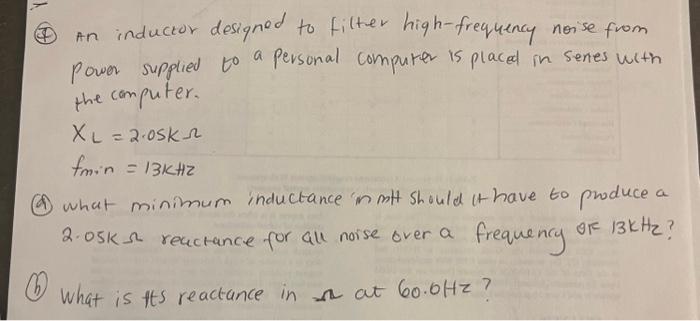 ④ An inductor designed to filter high-frequency noise from
power supplied to a personal computer is placed in series with
the computer.
XL = 2.05KΩ
fmin = 13KHZ
ⓐ what minimum inductance in mH should it have to produce a
2.05KΩ reactance for all noise over a frequency of 13KHz?
ⓑ What is its reactance in Ω at 60.0Hz?